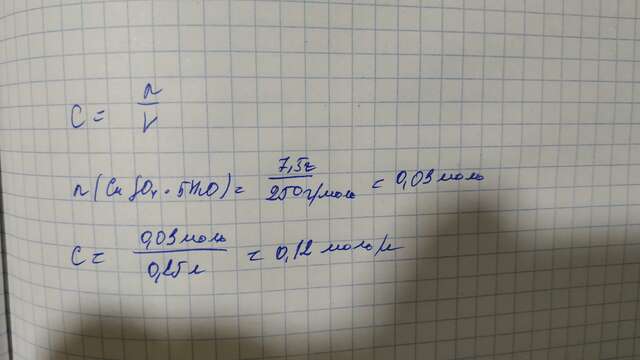 C = n/V
n(CuSO₄ · 5H₂O) = 7,5г/250г/моль = 0,03 моль
C = 0,03 моль/0,25л = 0,12 моль/л